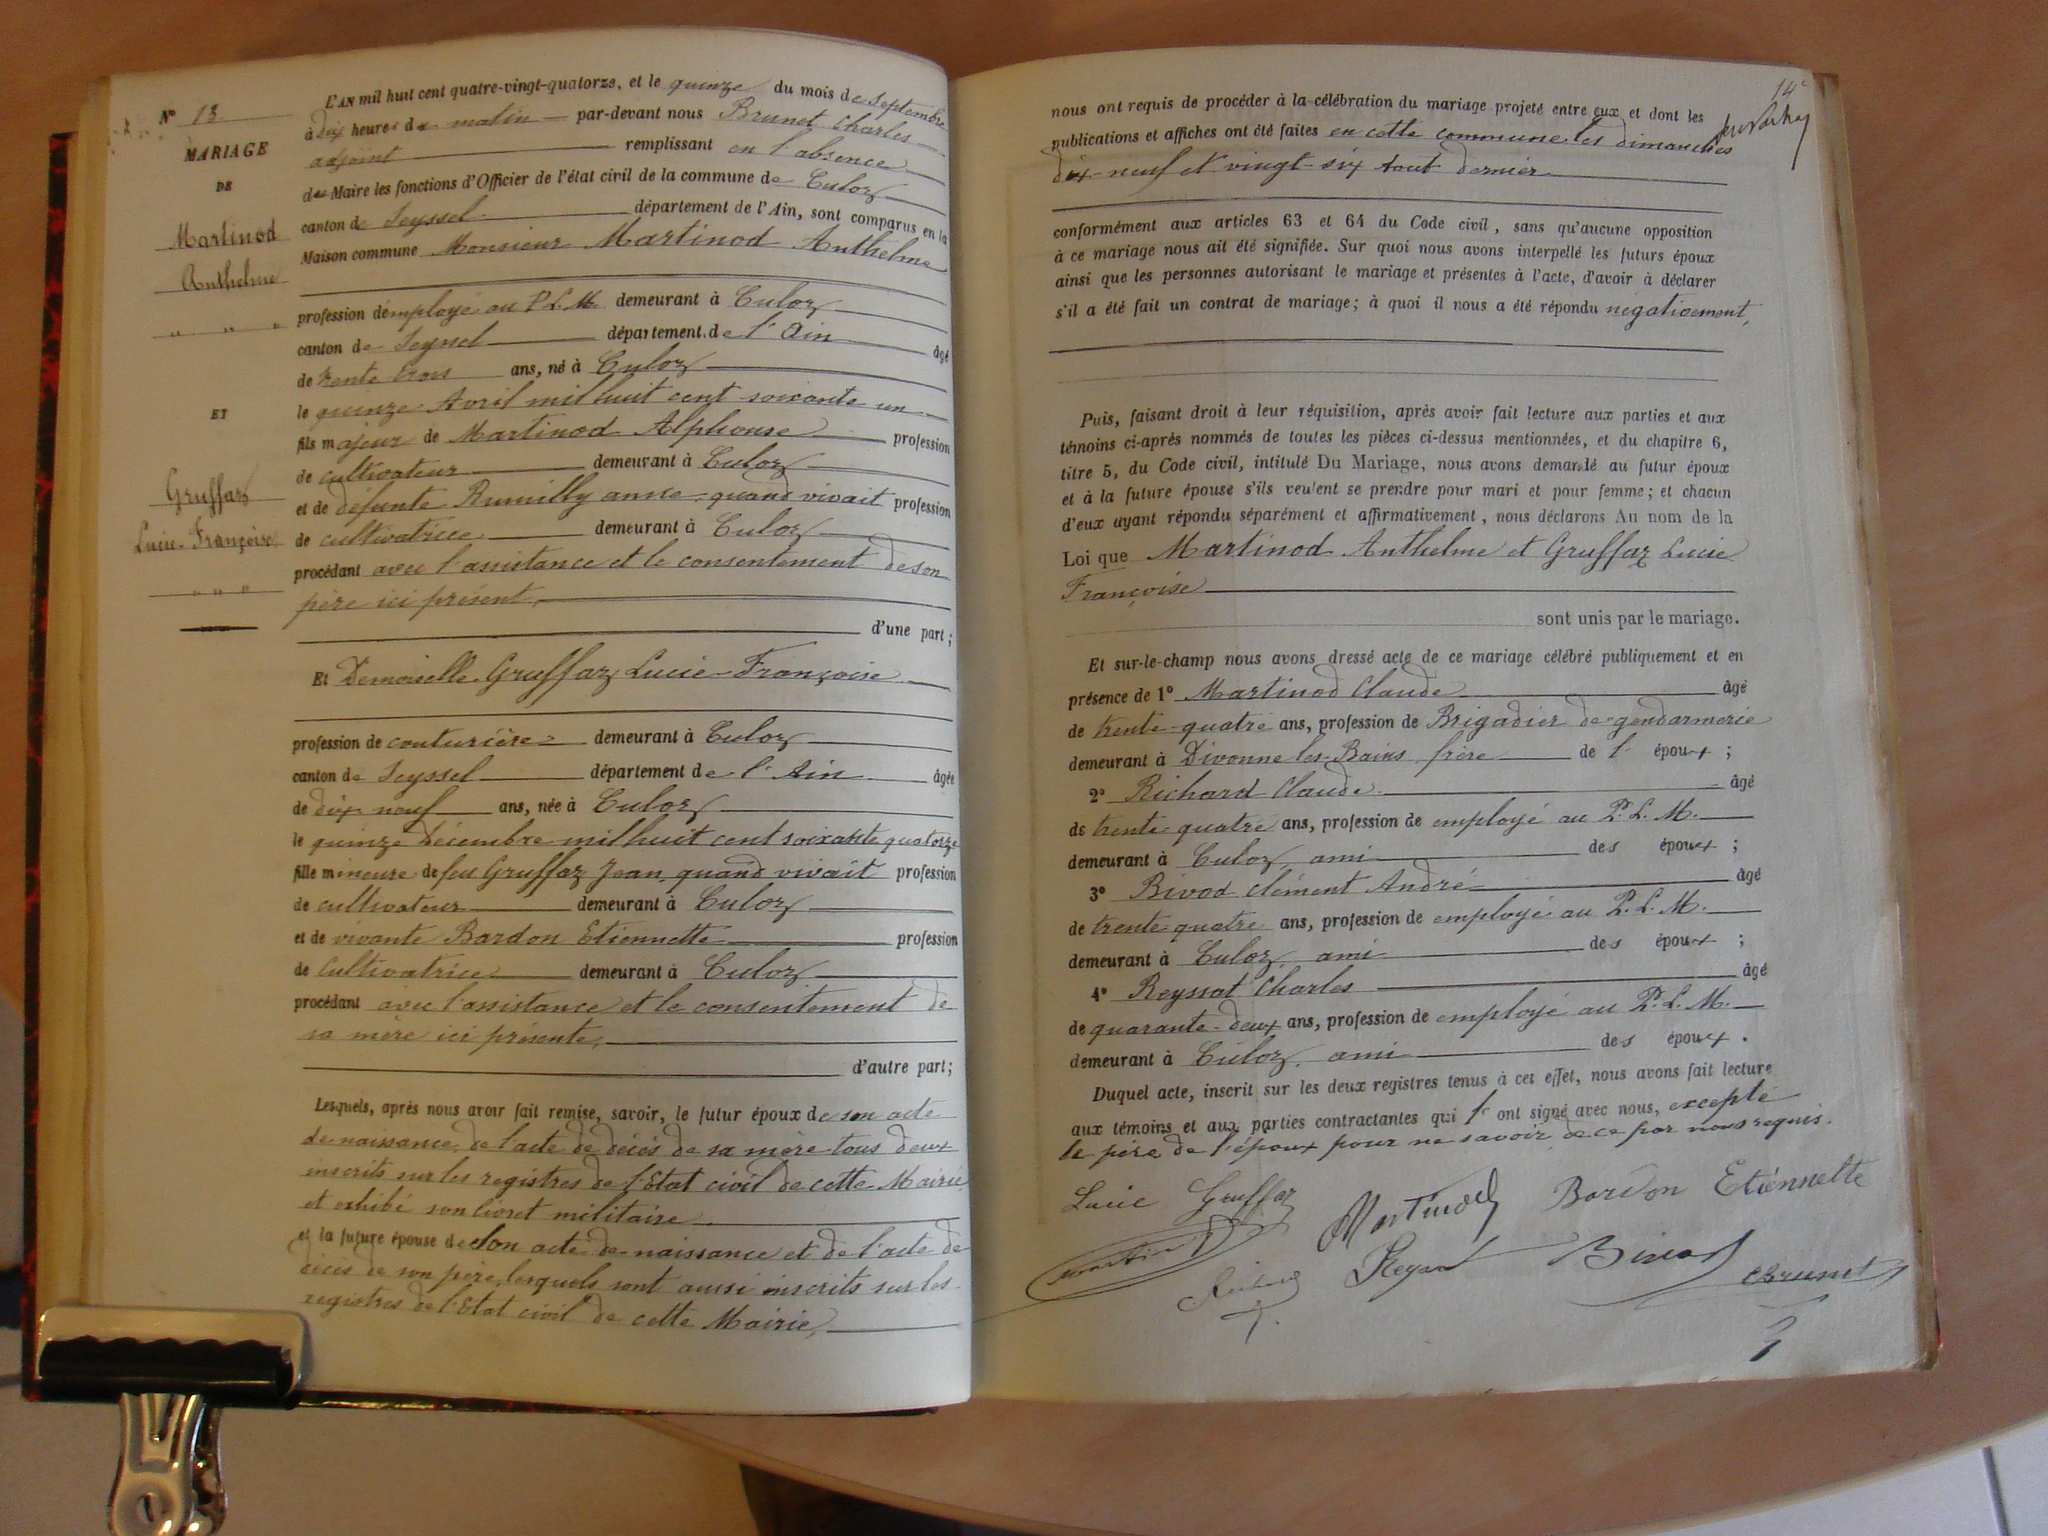 N° 13
MARIAGE
DE
Martinod
Anthelme
ET
Gruffaz
Lucie-Françoise
L'AN mil huit cent quatre-vingt-quatorze, et le quinze du mois de Septembre
à dix heures du matin par-devant nous Brunet Charles
adjoint remplissant en l'absence
du Maire les fonctions d'Officier de l'état civil de la commune de Culoz
canton de Seyssel département de l'Ain, sont comparus en la
Maison commune Monsieur Martinod Anthelme
profession d'employé au P.L.M. demeurant à Culoz
canton de Seyssel département de l'Ain âgé
de trente trois ans, né à Culoz
le quinze Avril mil huit cent soixante un
fils majeur de Martinod Alphonse profession
de cultivateur demeurant à Culoz
et de défunte Rumilly anne quand vivait profession
de cultivatrice demeurant à Culoz
procédant avec l'assistance et le consentement de son
père ici présent,
d'une part;
Et Demoiselle Gruffaz Lucie-Françoise
profession de couturière demeurant à Culoz
canton de Seyssel département de l'Ain âgée
de dix neuf ans, née à Culoz
le quinze Décembre mil huit cent soixante quatorze
fille mineure de feu Gruffaz Jean, quand vivait profession
de cultivateur demeurant à Culoz
et de vivante Bardon Etiennette profession
de Cultivatrice demeurant à Culoz
procédant avec l'assistance et le consentement de
sa mère ici présente,
d'autre part;
Lesquels, après nous avoir fait remise, savoir, le futur époux de son acte
de naissance, de l'acte de décès de sa mère tous deux
inscrits sur les registres de l'Etat civil de cette Mairie
et exhibé son livret militaire
et la future épouse de son acte de naissance et de l'acte de
décès de son père, lesquels sont aussi inscrits sur les
registres de l'Etat civil de cette Mairie,
14e
nous ont requis de procéder à la célébration du mariage projeté entre eux et dont les
publications et affiches ont été faites en cette commune les dimanches
dix-neuf et vingt-six Aout dernier
conformément aux articles 63 et 64 du Code civil, sans qu'aucune opposition
à ce mariage nous ait été signifiée. Sur quoi nous avons interpellé les futurs époux
ainsi que les personnes autorisant le mariage et présentes à l'acte, d'avoir à déclarer
s'il a été fait un contrat de mariage; à quoi il nous a été répondu négativement,
Puis, faisant droit à leur réquisition, après avoir fait lecture aux parties et aux
témoins ci-après nommés de toutes les pièces ci-dessus mentionnées, et du chapitre 6,
titre 5, du Code civil, intitulé Du Mariage, nous avons demandé au futur époux
et à la future épouse s'ils veulent se prendre pour mari et pour femme; et chacun
d'eux ayant répondu séparément et affirmativement, nous déclarons Au nom de la
Loi que Martinod Anthelme et Gruffaz Lucie
Françoise
sont unis par le mariage.
Et sur-le-champ nous avons dressé acte de ce mariage célébré publiquement et en
présence de 1° Martinod Claude âgé
de trente-quatre ans, profession de Brigadier de gendarmerie
demeurant à Divonne les-Bains frère de l' époux;
2° Richard Claude âgé
de trente-quatre ans, profession de employé au P.L.M.
demeurant à Culoz, ami des époux;
3° Bivod Clément André âgé
de trente quatre ans, profession de employé au P.L.M.
demeurant à Culoz, ami des époux;
4° Reyssat Charles âgé
de quarante-deux ans, profession de employé au P.L.M.
demeurant à Culoz, ami des époux.
Duquel acte, inscrit sur les deux registres tenus à cet effet, nous avons fait lecture
aux témoins et aux parties contractantes qui l' ont signé avec nous, excepté
le père de l'époux pour ne savoir de ce par nous requis.
Lucie Gruffaz Martinod Bardon Etiennette
Bivod CBrunet